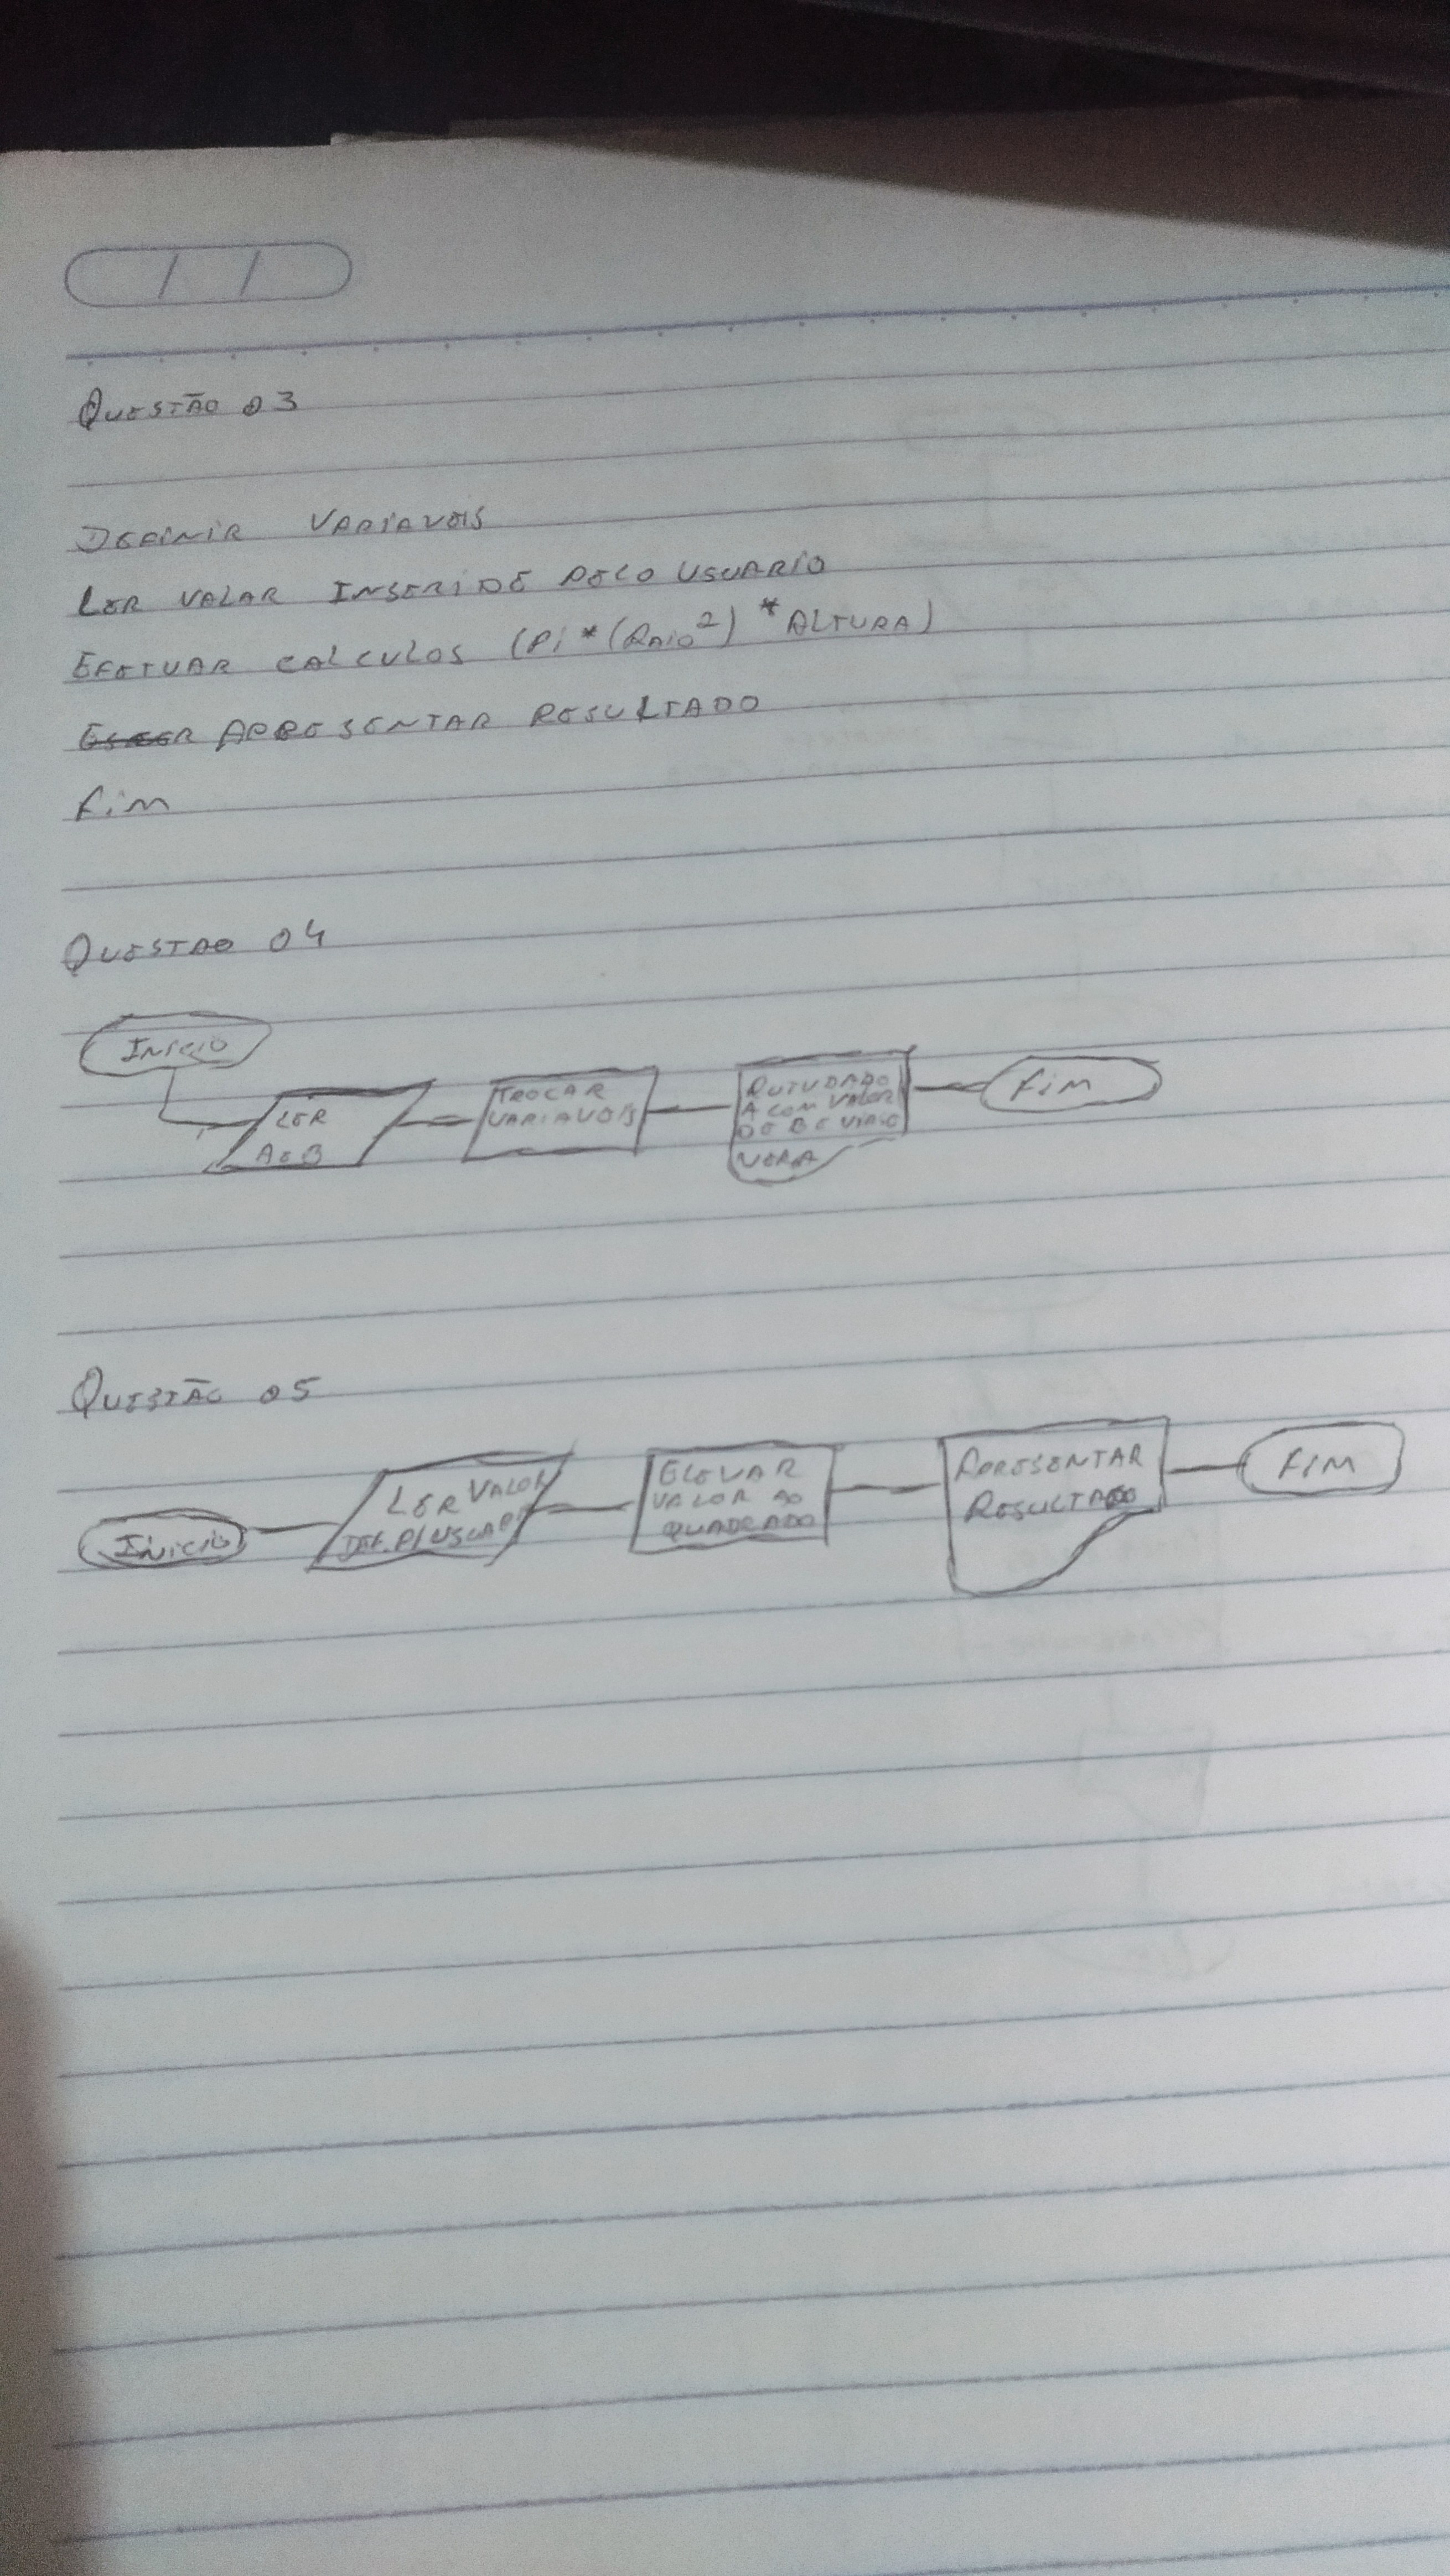 / /
QUESTÃO 03
DEFINIR VARIAVEIS
LER VALAR INSERIDE PELO USUARIO
EFETUAR CALCULOS (Pi * (RAIO²) * ALTURA)
APRESENTAR RESULTADO
Fim
QUESTAO 04
INICIO
LER
A e B
TROCAR
VARIAVEIS
A COM VALOR
DE B E
Fim
QUESTÃO 05
INICIO
LER VALOR
ELEVAR
VALOR AO
QUADRADO
APRESENTAR
RESULTADO
FIM